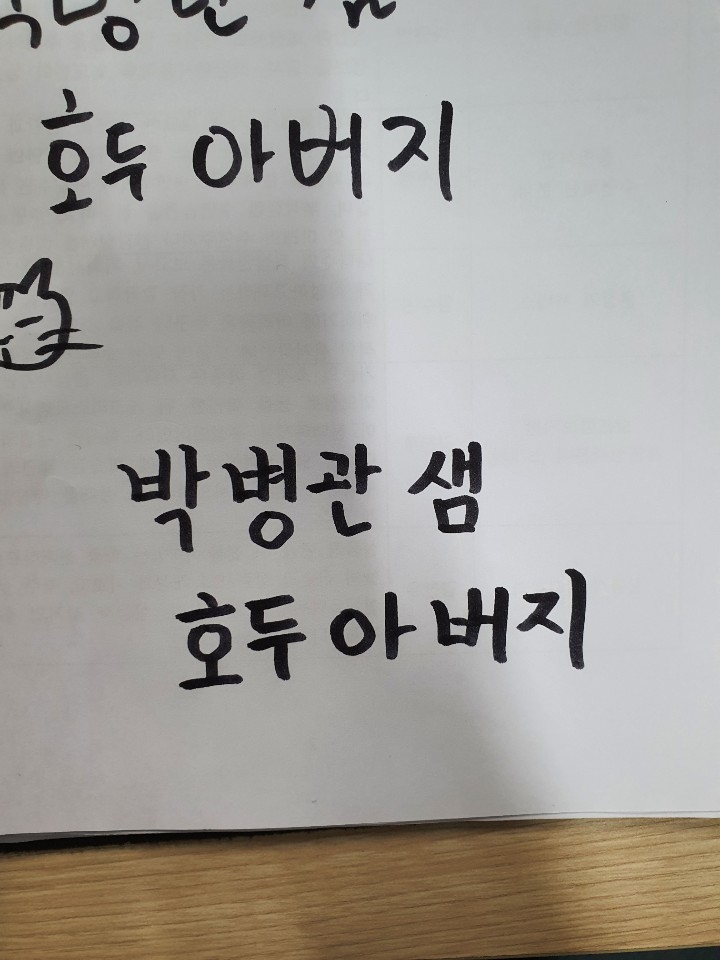 호두 아버지
박병관 샘
호두 아버지